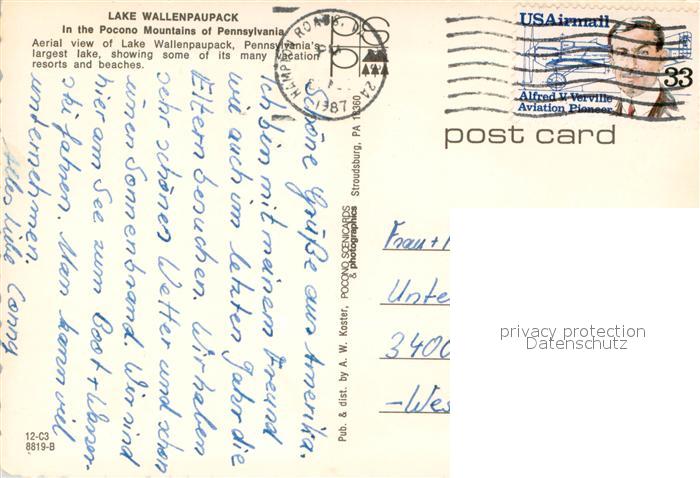 LAKE WALLENPAUPACK
In the Pocono Mountains of Pennsylvania
Aerial view of Lake Wallenpaupack, Pennsylvania's
largest lake, showing some of its many vacation
resorts and beaches.
HAMPTON ROADS, VA
1987
USAirmail
33
Alfred V. Verville
Aviation Pioneer
post card
Schöne Grüße aus Amerika.
Ich bin mit meinem Freund
wie auch im letzten Jahr die
Eltern besuchen. Wir haben
sehr schönes Wetter und schon
einen Sonnenbrand. Wir sind
hier am See zum Boot + Wasser-
skifahren. Man kann viel
unternehmen.
Alles Liebe Conny
Pub. & dist. by A. W. Koster, POCONO SCENICARDS
& photographics Stroudsburg, PA 18360
Frau +
Unte
3400
-Wes
privacy protection
Datenschutz
12-C3
8819-B